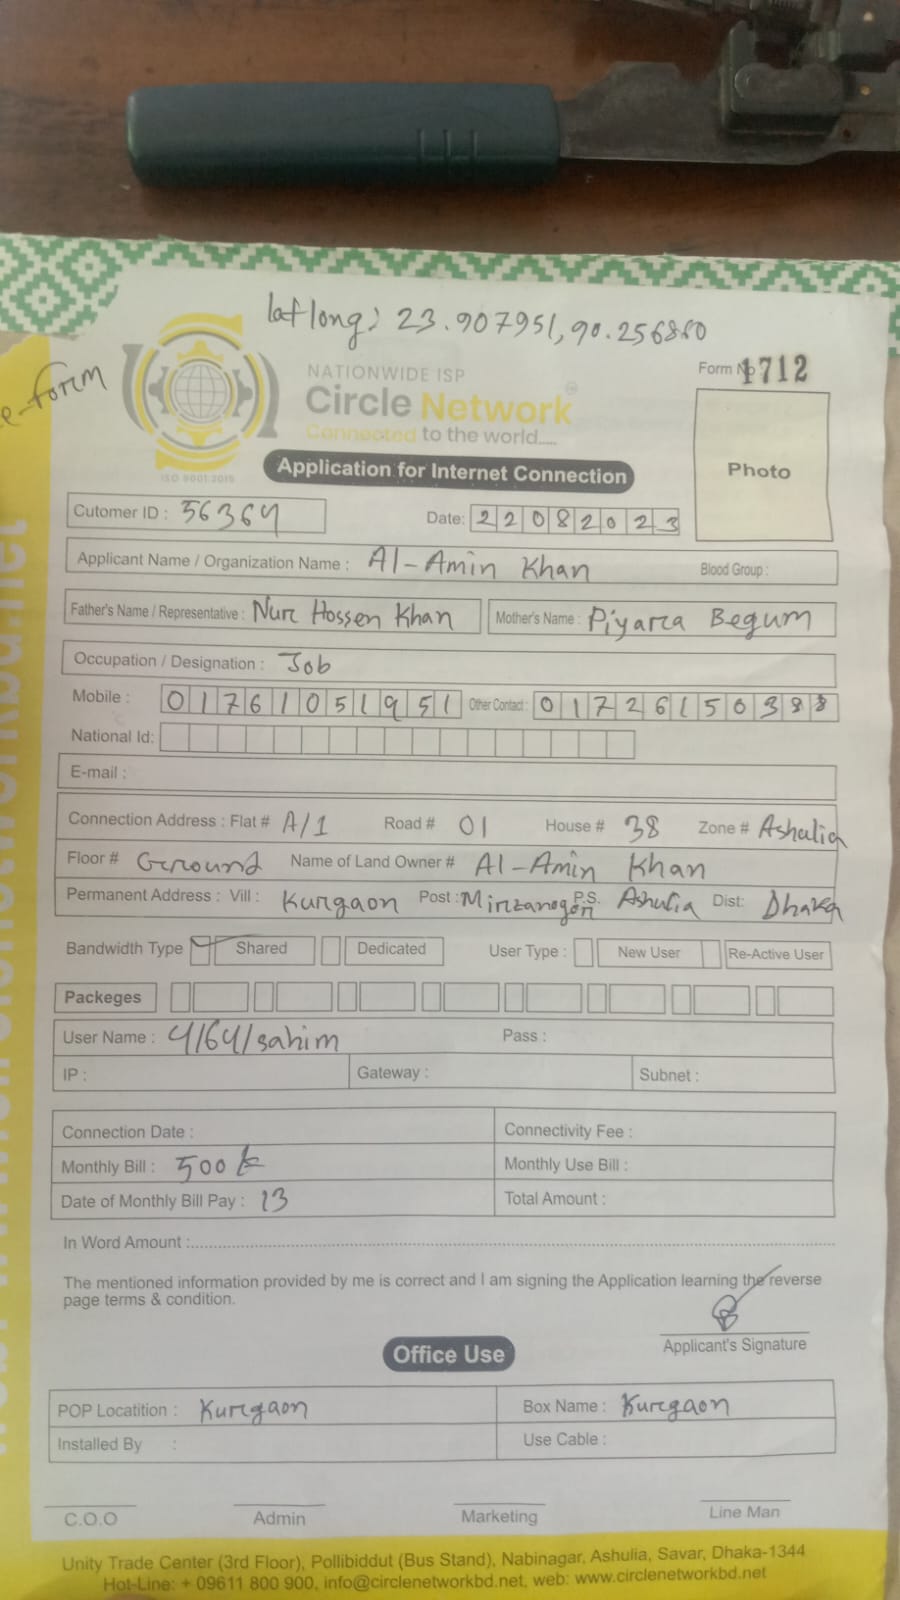 lat long: 23.907951, 90.256860
e-form
NATIONWIDE ISP
Circle Network
Connected to the world.....
ISO 9001:2015
Form No 1712
Photo
Application for Internet Connection
Cutomer ID : 56364
Date: 22082023
Applicant Name / Organization Name : Al-Amin Khan Blood Group :
Father's Name / Representative : Nur Hossen Khan Mother's Name : Piyara Begum
Occupation / Designation : Job
Mobile : 01761051951 Other Contact : 01726150388
National Id:
E-mail :
Connection Address : Flat # A/1 Road # 01 House # 38 Zone # Ashulia
Floor # Ground Name of Land Owner # Al-Amin Khan
Permanent Address : Vill : Kurgaon Post : Mirzanagar P.S. Ashulia Dist: Dhaka
Bandwidth Type Shared Dedicated User Type : New User Re-Active User
Packeges
User Name : 4/64/sahim Pass :
IP : Gateway : Subnet :
Connection Date : Connectivity Fee :
Monthly Bill : 500 Monthly Use Bill :
Date of Monthly Bill Pay : 13 Total Amount :
In Word Amount :
The mentioned information provided by me is correct and I am signing the Application learning the reverse
page terms & condition.
Applicant's Signature
Office Use
POP Locatition : Kurgaon Box Name : Kurgaon
Installed By : Use Cable :
C.O.O Admin Marketing Line Man
Unity Trade Center (3rd Floor), Pollibiddut (Bus Stand), Nabinagar, Ashulia, Savar, Dhaka-1344
Hot-Line: + 09611 800 900, info@circlenetworkbd.net, web: www.circlenetworkbd.net